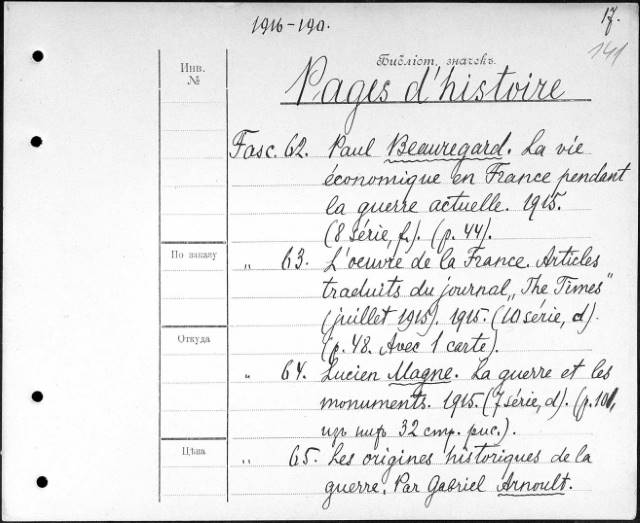 1916-190.
17.
141
Инв.
№
Библіот. значекъ.
Pages d'histoire
Fasc. 62. Paul Beauregard. La vie
économique en France pendant
la guerre actuelle. 1915.
(8 série, f.). (p. 44).
По заказу
„ 63. L'oeuvre de la France. Articles
traduits du journal „The Times"
(juillet 1915). 1915. (10 série, d).
Откуда
(p. 48. Avec 1 carte).
„ 64. Lucien Magne. La guerre et les
monuments. 1915. (7 série, d). (p. 101,
изъ них 32 стр. рис.).
Цѣна
„ 65. Les origines historiques de la
guerre. Par Gabriel Arnoult.